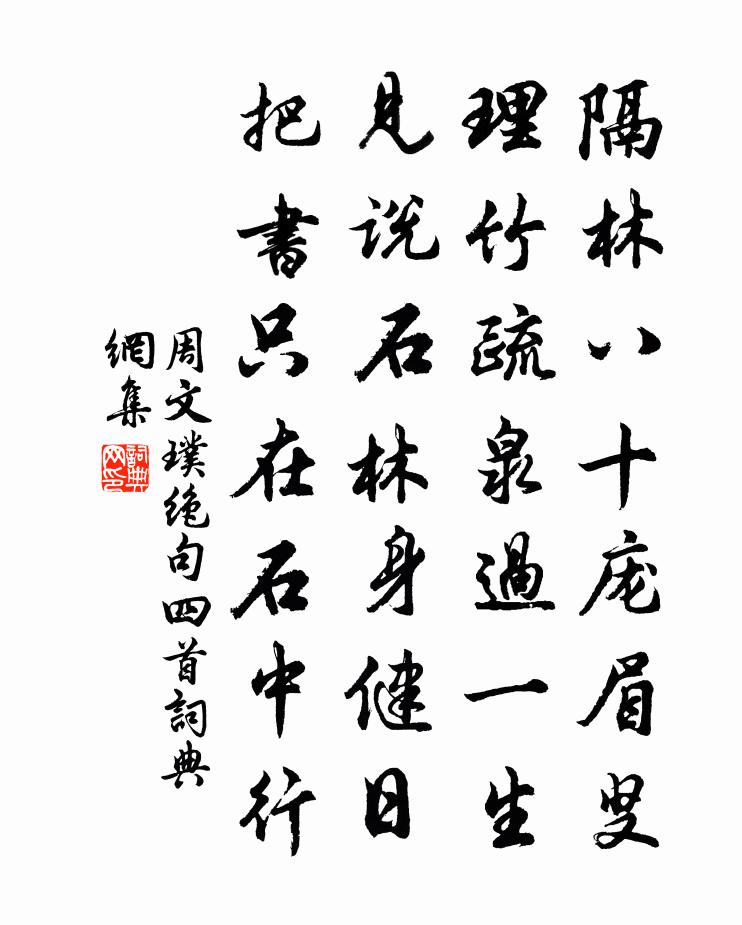 隔林八十庞眉叟
理竹疏泉過一生
見説石林身健日
把書只在石中行
周文璞绝句四首詞典
網集
詞典網印